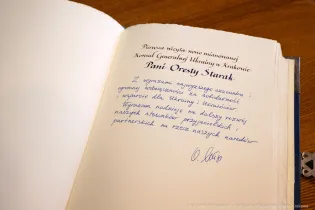 Pierwsza wizyta nowo mianowanej
Konsul Generalnej Ukrainy w Krakowie
Pani Oresty Starak
Z wyrazami najwyższego szacunku i
ogromnej wdzięczności za solidarność
i wsparcie dla Ukrainy i Ukraińców
Wyrażam nadzieję na dalszy rozwój
naszych stosunków przyjacielskich i
partnerskich na rzecz naszych narodów